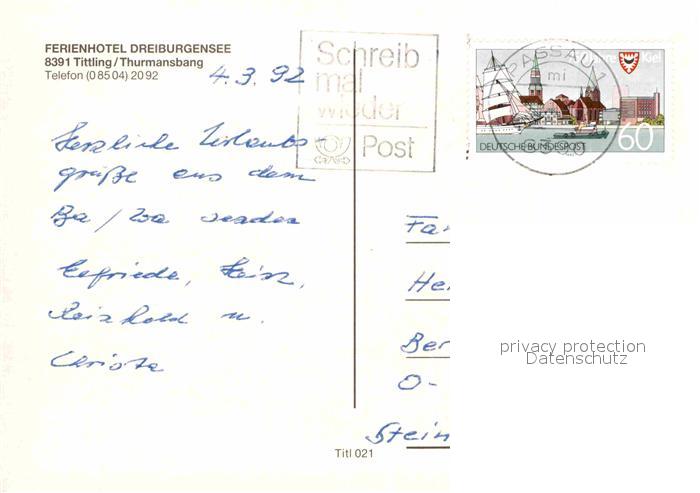 FERIENHOTEL DREIBURGENSEE
8391 Tittling / Thurmansbang
Telefon (0 85 04) 20 92
4.3.92
Schreib
mal
wieder
Post
PASSAU 1
mi
Kiel
DEUTSCHE BUNDESPOST
60
Herzliche Urlaubs-
grüße aus dem
senden
Elfriede, Heinz,
Reinhold u.
Christa
Fa
He
Ber
O-
Stein
privacy protection
Datenschutz
Titl 021